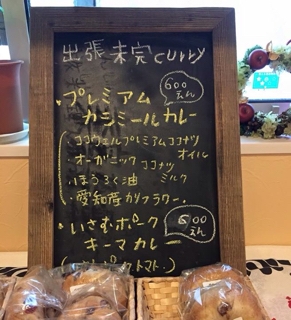 出張 未完 curry
・プレミアム
カシミールカレー
600
えん
・ココウェルプレミアムココナツ
オイル
・オーガニック ココナツ
ミルク
・ほうろく油
・愛知産カリフラワー
・いさむポーク
キーマカレー
600
えん
トマト